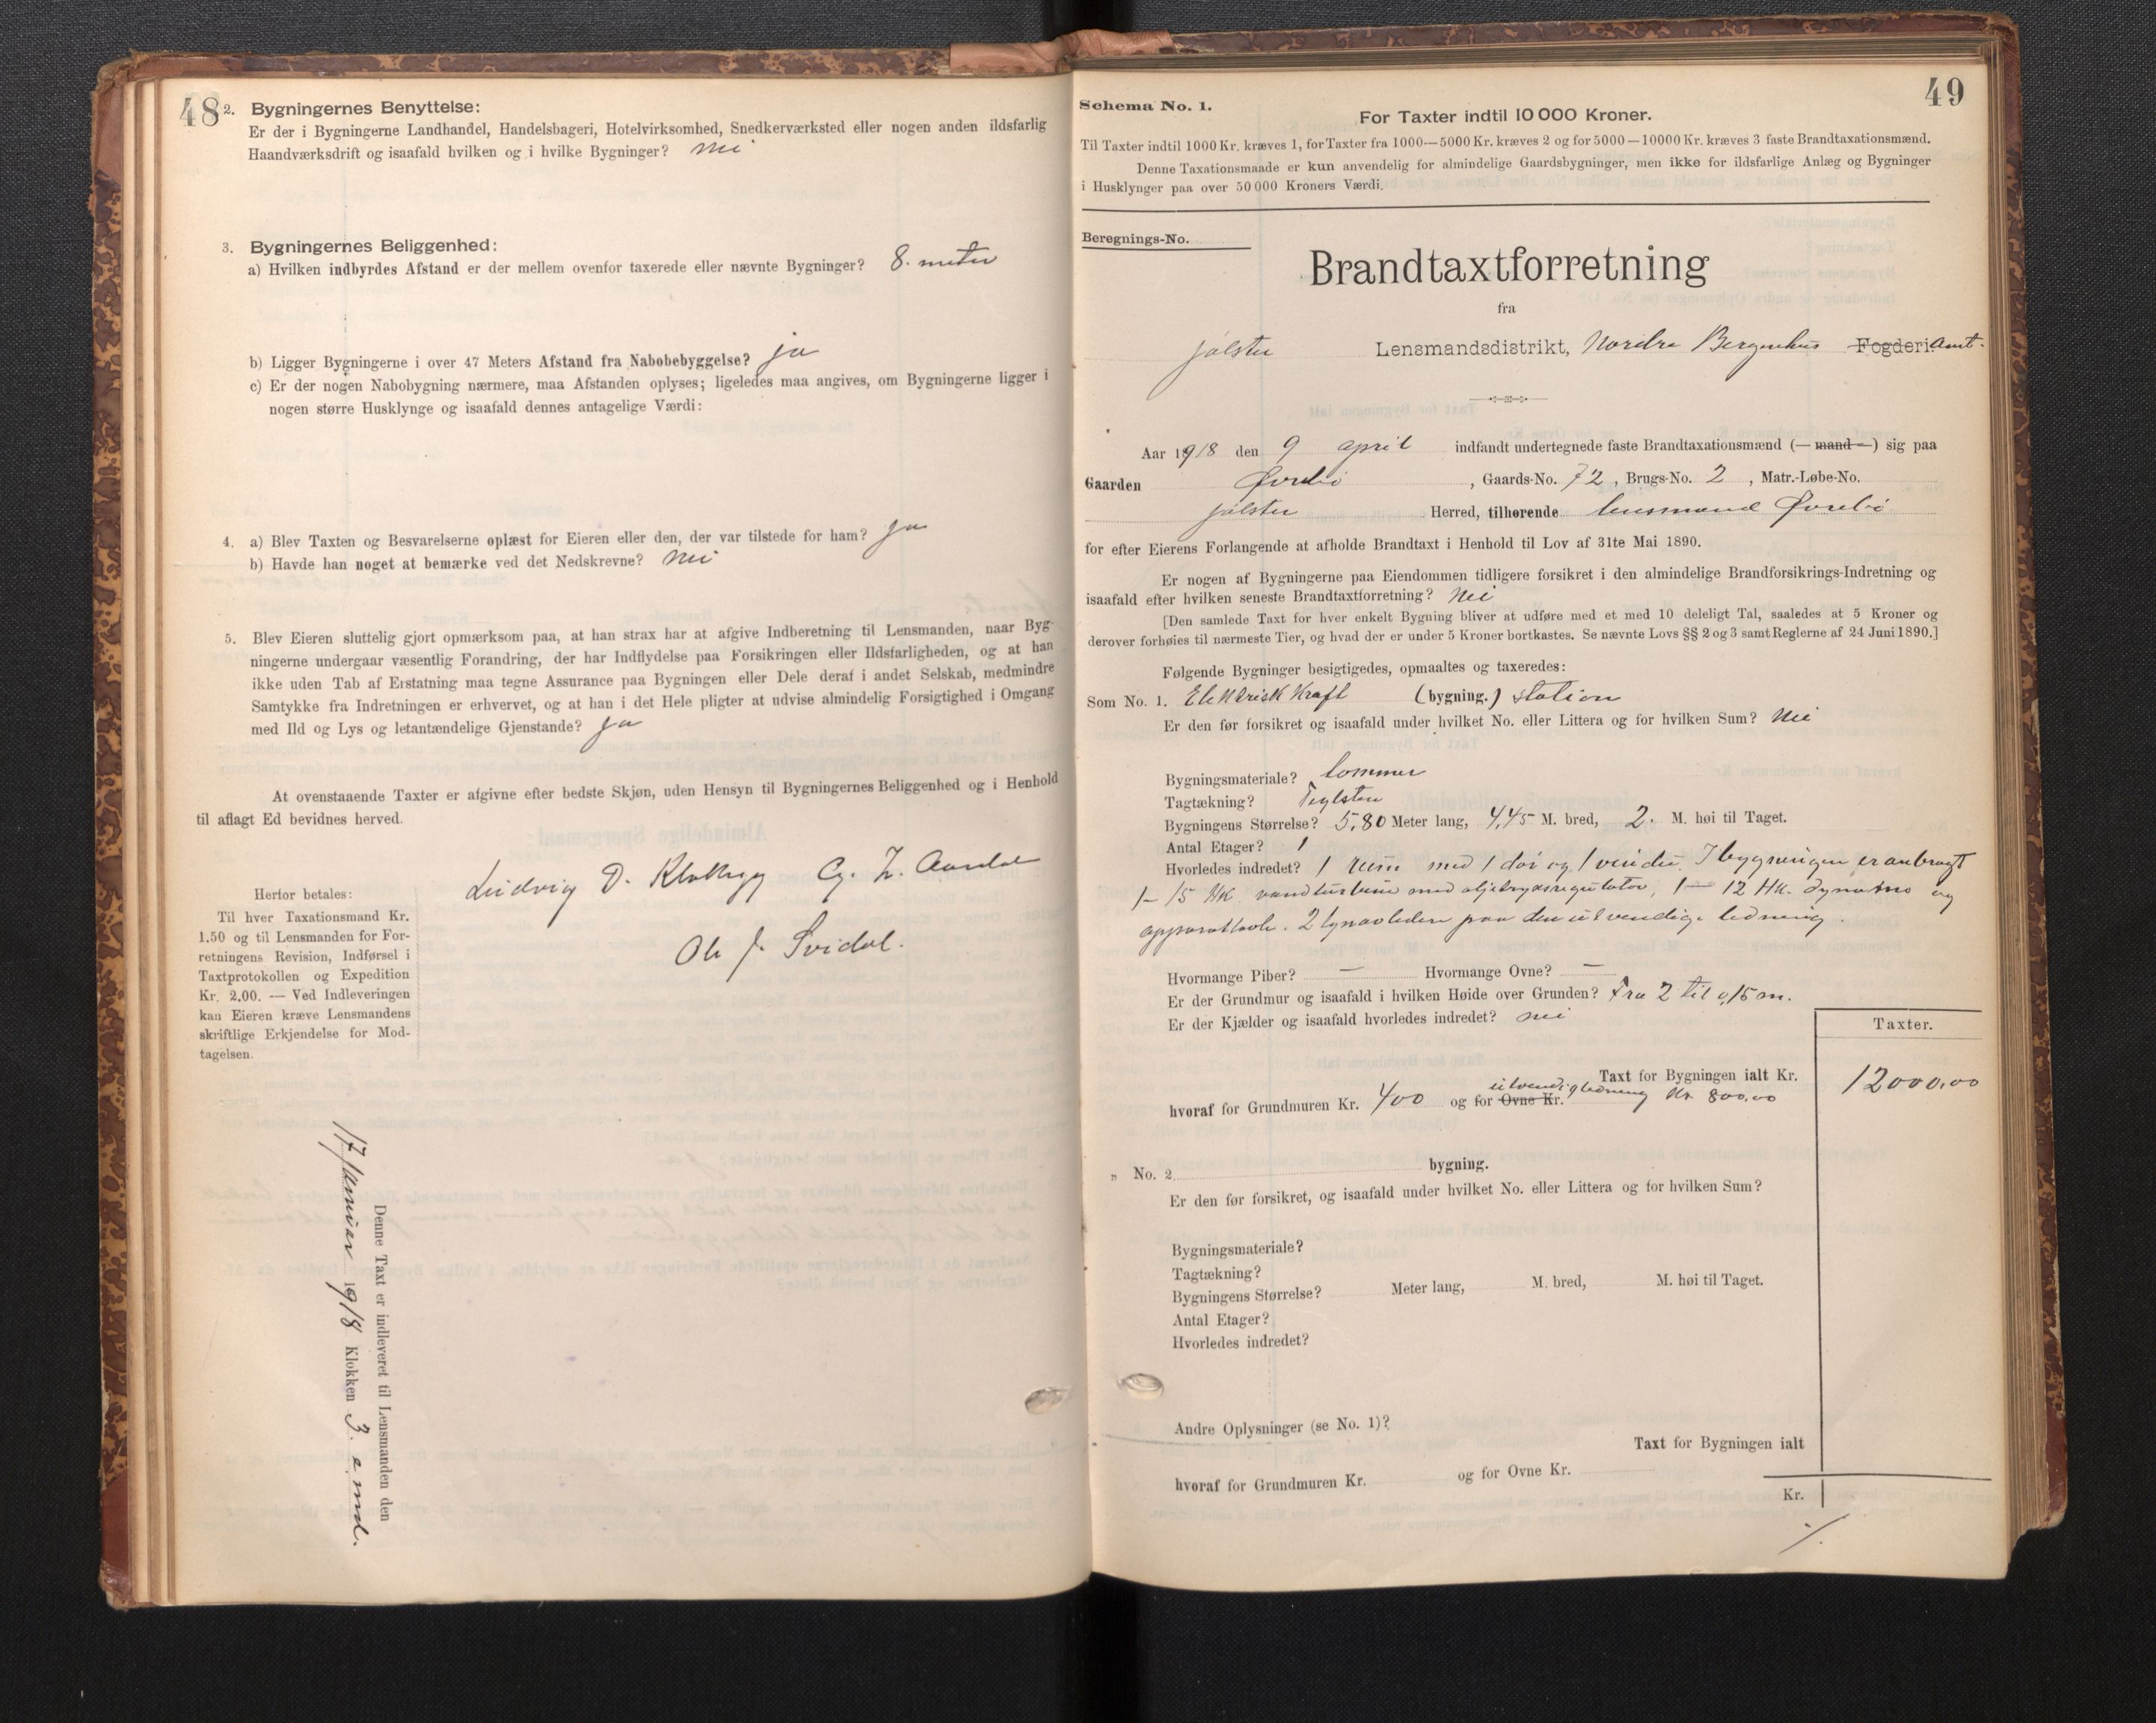 48
2. Bygningernes Benyttelse:
Er der i Bygningerne Landhandel, Handelsbageri, Hotelvirksomhed, Snedkerværksted eller nogen anden ildsfarlig
Haandværksdrift og isaafald hvilken og i hvilke Bygninger? nei
3. Bygningernes Beliggenhed:
a) Hvilken indbyrdes Afstand er der mellem ovenfor taxerede eller nævnte Bygninger? 8. meter
b) Ligger Bygningerne i over 47 Meters Afstand fra Nabobebyggelse? ja
c) Er der nogen Nabobygning nærmere, maa Afstanden oplyses; ligeledes maa angives, om Bygningerne ligger i
nogen større Husklynge og isaafald dennes antagelige Værdi:
4. a) Blev Taxten og Besvarelserne oplæst for Eieren eller den, der var tilstede for ham? ja
b) Havde han noget at bemærke ved det Nedskrevne? nei
5. Blev Eieren sluttelig gjort opmærksom paa, at han strax har at afgive Indberetning til Lensmanden, naar Byg-
ningerne undergaar væsentlig Forandring, der har Indflydelse paa Forsikringen eller Ildsfarligheden, og at han
ikke uden Tab af Erstatning maa tegne Assurance paa Bygningen eller Dele deraf i andet Selskab, medmindre
Samtykke fra Indretningen er erhvervet, og at han i det Hele pligter at udvise almindelig Forsigtighed i Omgang
med Ild og Lys og letantændelige Gjenstande? ja
At ovenstaaende Taxter er afgivne efter bedste Skjøn, uden Hensyn til Bygningernes Beliggenhed og i Henhold
til aflagt Ed bevidnes herved.
Ludvig D. Klakegg
Ole J. Svidal.
Herfor betales:
Til hver Taxationsmand Kr.
1.50 og til Lensmanden for For-
retningens Revision, Indførsel i
Taxtprotokollen og Expedition
Kr. 2.00. — Ved Indleveringen
kan Eieren kræve Lensmandens
skriftlige Erkjendelse for Mod-
tagelsen.
Denne Taxt er indleveret til Lensmanden den
17 januar 1918 Klokken 3. e. md.
49
Schema No. 1.
For Taxter indtil 10 000 Kroner.
Til Taxter indtil 1000 Kr. kræves 1, for Taxter fra 1000—5000 Kr. kræves 2 og for 5000—10000 Kr. kræves 3 faste Brandtaxationsmænd.
Denne Taxationsmaade er kun anvendelig for almindelige Gaardsbygninger, men ikke for ildsfarlige Anlæg og Bygninger
i Husklynger paa over 50 000 Kroners Værdi.
Beregnings-No.
Brandtaxtforretning
fra
Jølster Lensmandsdistrikt, Nordre Bergenhus Fogderi Amt.
Aar 1918 den 9 april indfandt undertegnede faste Brandtaxationsmænd (— mand —) sig paa
Gaarden Øvrebø, Gaards-No. 72, Brugs-No. 2, Matr.-Løbe-No.
Jølster Herred, tilhørende lensmand Øvrebø
for efter Eierens Forlangende at afholde Brandtaxt i Henhold til Lov af 31te Mai 1890.
Er nogen af Bygningerne paa Eiendommen tidligere forsikret i den almindelige Brandforsikrings-Indretning og
isaafald efter hvilken seneste Brandtaxtforretning? Nei
[Den samlede Taxt for hver enkelt Bygning bliver at udføre med et med 10 deleligt Tal, saaledes at 5 Kroner og
derover forhøies til nærmeste Tier, og hvad der er under 5 Kroner bortkastes. Se nævnte Lovs §§ 2 og 3 samt Reglerne af 24 Juni 1890.]
Følgende Bygninger besigtigedes, opmaaltes og taxeredes:
Som No. 1. Elektrisk Kraft (bygning.) station
Er den før forsikret og isaafald under hvilket No. eller Littera og for hvilken Sum? Nei
Bygningsmateriale? tømmer
Tagtækning? Teglsten
Bygningens Størrelse? 5,80 Meter lang, 4,45 M. bred, 2. M. høi til Taget.
Antal Etager? 1
Hvorledes indredet? 1 rum med 1 dør og 1 vindu. I bygningen er anbragt
1 - 15 HK vandturbine med oljetryksregulator, 1 — 12 HK. dynamo og
apparattavle. 2 lynavledere paa den utvendige ledning.
Hvormange Piber? — Hvormange Ovne? —
Er der Grundmur og isaafald i hvilken Høide over Grunden? Fra 2 til 0,15 m.
Er der Kjælder og isaafald hvorledes indredet? nei
Taxter.
Taxt for Bygningen ialt Kr. 12000,00
hvoraf for Grundmuren Kr. 400 og for Ovne Kr. utvendig ledning Kr. 800,00
" No. 2 bygning.
Er den før forsikret, og isaafald under hvilket No. eller Littera og for hvilken Sum?
Bygningsmateriale?
Tagtækning?
Bygningens Størrelse? Meter lang, M. bred, M. høi til Taget.
Antal Etager?
Hvorledes indredet?
Andre Oplysninger (se No. 1)?
Taxt for Bygningen ialt
hvoraf for Grundmuren Kr. og for Ovne Kr.
Kr.